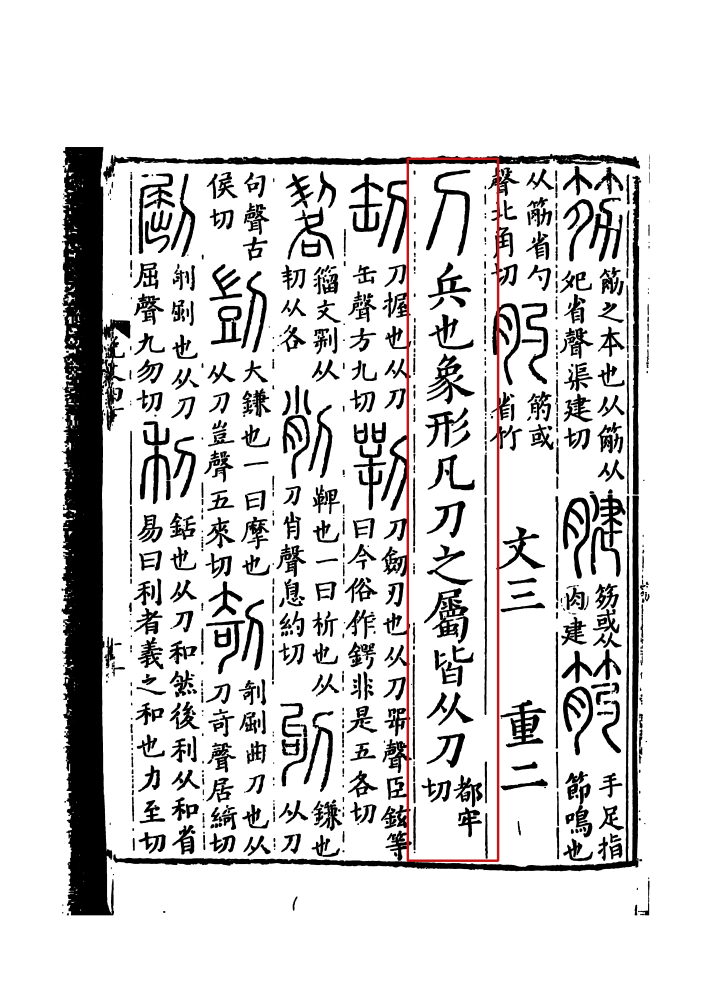 筋之本也从筋从
夗省聲渠建切
腱
或从
肉建
手足指
節鳴也
从筋省勺
聲北角切
肑
或
省竹
文三 重二
刀 兵也象形凡刀之屬皆从刀 都牢
切
刀握也从刀
缶聲方九切
刀劒刃也从刀咢聲臣鉉等
曰今俗作鍔非是五各切
籒文㓵从
㓞从各
削
鞞也一曰析也从
刀肖聲息約切
鎌也
从刀
句聲古
侯切
剴
大鎌也一曰摩也
从刀豈聲五來切
剞
剞𠜾曲刀也从
刀奇聲居綺切
𠜾
剞𠜾也从刀
屈聲九勿切
利
銛也从刀和然後利从和省
易曰利者義之和也力至切